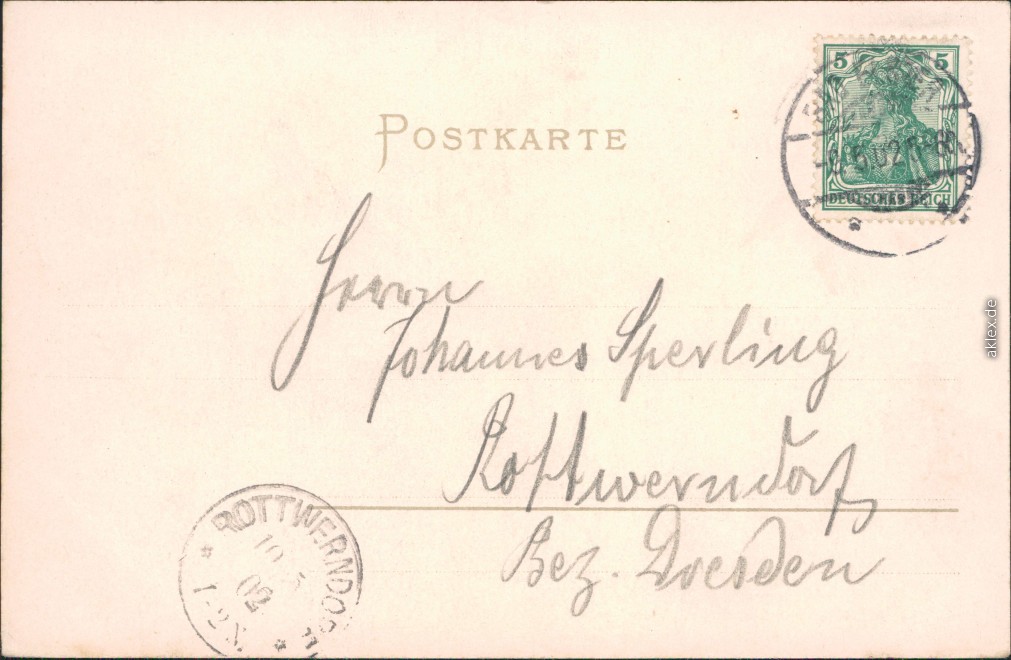 POSTKARTE
5 5
DEUTSCHES REICH
6.5.02
Herrn
Johannes Sperling
Rottwerndorf
Bez. Dresden
ROTTWERNDORF
10 5
02
1-2N
aklex.de